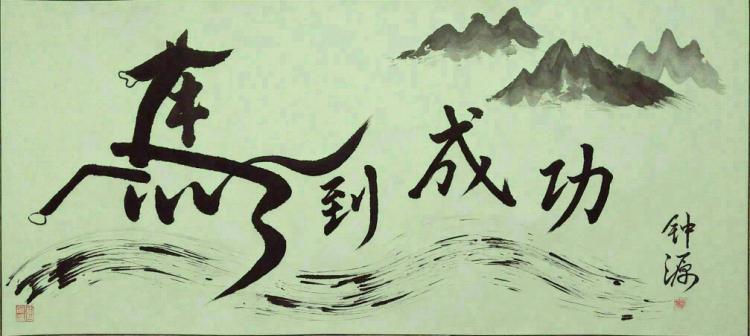 馬到成功
钟源